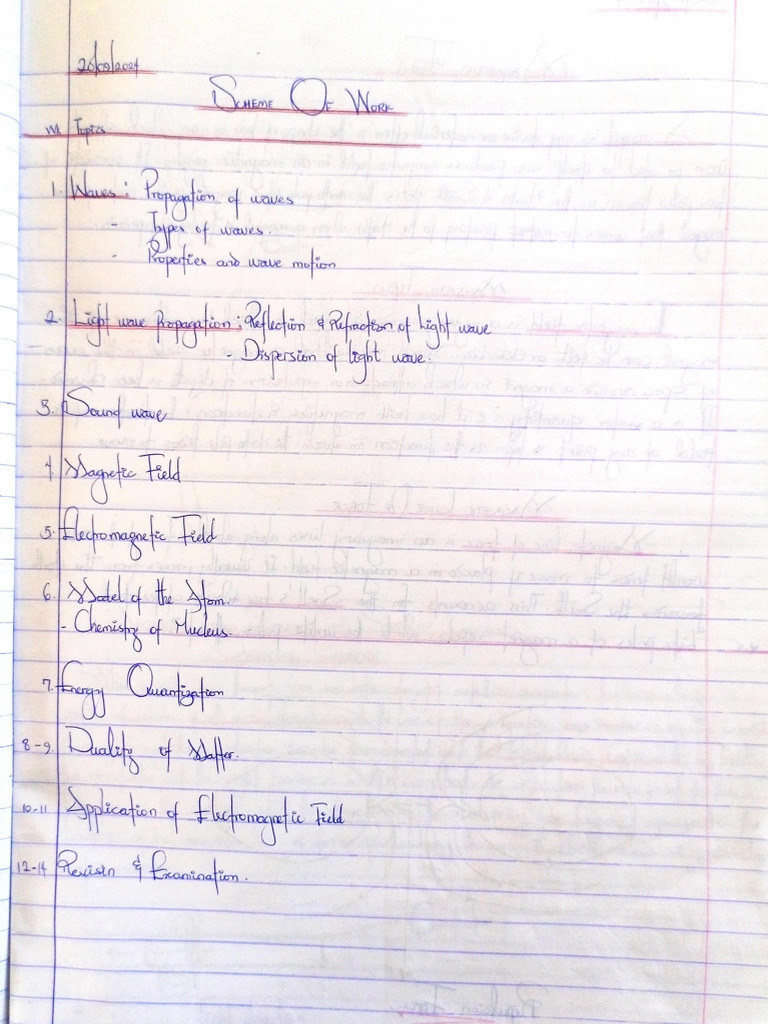 20/09/2024
SCHEME OF WORK
Wk Topics.
1. Waves: Propagation of waves
- Types of waves.
- Properties and wave motion
2. Light wave Propagation: Reflection & Refraction of Light wave
- Dispersion of light wave.
3. Sound wave
4. Magnetic Field
5. Electromagnetic Field
6. Model of the Atom.
- Chemistry of Nucleus.
7. Energy Quantization
8-9. Duality of Matter.
10-11 Application of Electromagnetic Field
12-14 Revision & Examination.